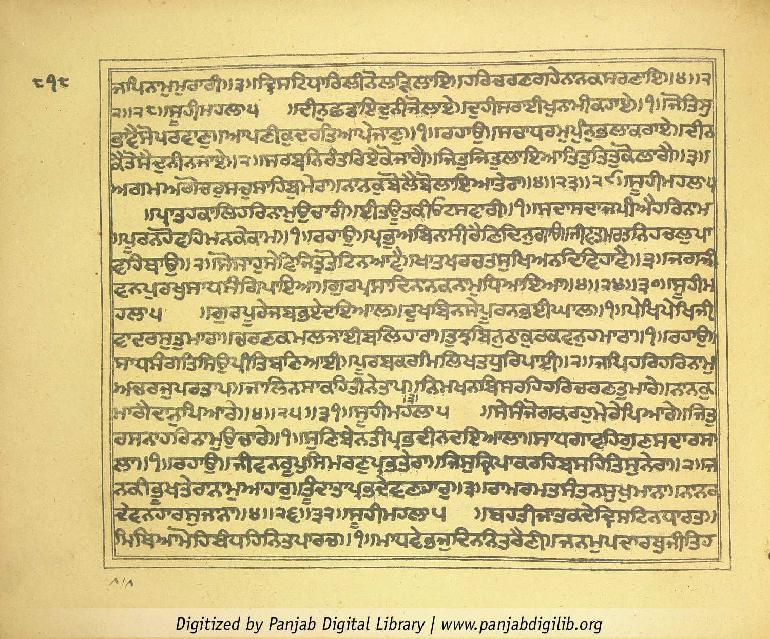 ੮੧੮
ਜਪਿਨਾਮੁਮੁਰਾਰੀ॥੩॥ਦ੍ਰਿਸਟਿਧਾਰਿਲੀਨੋਲੜਿਲਾਇ॥ਹਰਿਚਰਣਗਹੇਨਾਨਕਸਰਣਾਇ॥੪॥੨
੨॥੨੮॥ਸੂਹੀਮਹਲਾ੫ ॥ਦੀਨੁਛਡਾਇਦੁਨੀਜੋਲਾਏ॥ਦੁਹੀਸਰਾਈਖੁਨਾਮੀਕਹਾਏ॥੧॥ਜੋਤਿਸੁ
ਭਾਵੈਸੋਪਰਵਾਣੁ॥ਆਪਣੀਕੁਦਰਤਿਆਪੇਜਾਣੁ॥੧॥ਰਹਾਉ॥ਸਚਾਧਰਮੁਪੁੰਨੁਭਲਾਕਰਾਏ॥ਦੀਨ
ਕੈਤੋਸੈਦੁਨੀਨਜਾਏ॥੨॥ਸਰਬਨਿਰੰਤਰਿਏਕੋਜਾਗੈ॥ਜਿਤੁਜਿਤੁਲਾਇਆਤਿਤੁਤਿਤੁਕੋਲਾਗੈ॥੩॥
ਅਗਮਅਗੋਚਰੁਸਚੁਸਾਹਿਬੁਮੇਰਾ॥ਨਾਨਕੁਬੋਲੈਬੋਲਾਇਆਤੇਰਾ॥੪॥੨੩॥੨੯॥ਸੂਹੀਮਹਲਾ੫
॥ਪ੍ਰਾਤਹਕਾਲਿਹਰਿਨਾਮੁਉਚਾਰੀ॥ਈਤਊਤਕੀਓਟਸਵਾਰੀ॥੧॥ਸਦਾਸਦਾਜਪੀਐਹਰਿਨਾਮ
॥ਪੂਰਨਹੋਵਹਿਮਨਕੇਕਾਮ॥੧॥ਰਹਾਉ॥ਪ੍ਰਭੁਅਬਿਨਾਸੀਰੈਣਿਦਿਨੁਗਾਉ॥ਜੀਵਤਮਰਤਨਿਹਚਲੁਪਾ
ਵਹਿਥਾਉ॥੨॥ਸੋਸਾਹੁਸੇਵਿਜਿਤੁਤੋਟਿਨਆਵੈ॥ਖਾਤਖਰਚਤਸੁਖਿਅਨਦਿਵਿਹਾਵੈ॥੩॥ਜਗਜੀ
ਵਨਪੁਰਖੁਸਾਧਸੰਗਿਪਾਇਆ॥ਗੁਰਪ੍ਰਸਾਦਿਨਾਨਕਨਾਮੁਧਿਆਇਆ॥੪॥੨੪॥੩੦॥ਸੂਹੀਮ
ਹਲਾ੫ ॥ਗੁਰਪੂਰੇਜਬਭਏਦਇਆਲ॥ਦੁਖਬਿਨਸੇਪੂਰਨਭਈਘਾਲ॥੧॥ਪੇਖਿਪੇਖਿਜੀ
ਵਾਦਰਸੁਤੁਮਾਰਾ॥ਚਰਣਕਮਲਜਾਈਬਲਿਹਾਰਾ॥ਤੁਝਬਿਨੁਠਾਕੁਰਕਵਨੁਹਮਾਰਾ॥੧॥ਰਹਾਉ॥
ਸਾਧਸੰਗਤਿਸਿਉਪ੍ਰੀਤਿਬਣਿਆਈ॥ਪੂਰਬਕਰਮਿਲਿਖਤਧੁਰਿਪਾਈ॥੨॥ਜਪਿਹਰਿਹਰਿਨਾਮੁ
ਅਚਰਜੁਪਰਤਾਪ॥ਜਾਲਿਨਸਾਕਹਿਤੀਨੇਤਾਪ॥੩॥ਨਿਮਖਨਬਿਸਰਹਿਹਰਿਚਰਣਤੁਮਾਰੇ॥ਨਾਨਕੁ
ਮਾਗੈਦਾਨੁਪਿਆਰੇ॥੪॥੨੫॥੩੧॥ਸੂਹੀਮਹਲਾ੫ ॥ਸੇਸੰਜੋਗਕਰਹੁਮੇਰੇਪਿਆਰੇ॥ਜਿਤੁ
ਰਸਨਾਹਰਿਨਾਮੁਉਚਾਰੇ॥੧॥ਸੁਣਿਬੇਨਤੀਪ੍ਰਭਦੀਨਦਇਆਲਾ॥ਸਾਧਗਾਵਹਿਗੁਣਸਦਾਰਸਾ
ਲਾ॥੧॥ਰਹਾਉ॥ਜੀਵਨਰੂਪੁਸਿਮਰਣੁਪ੍ਰਭਤੇਰਾ॥ਜਿਸੁਕ੍ਰਿਪਾਕਰਹਿਬਸਹਿਤਿਸੁਨੇਰਾ॥੨॥ਜ
ਨਕੀਭੂਖਤੇਰਾਨਾਮੁਆਹਾਰੁ॥ਤੂੰਦਾਤਾਪ੍ਰਭਦੇਵਣਹਾਰੁ॥੩॥ਰਾਮਰਮਤਸੰਤਨਸੁਖੁਮਾਨਾ॥ਨਾਨਕ
ਦੇਵਨਹਾਰਸੁਜਾਨਾ॥੪॥੨੬॥੩੨॥ਸੂਹੀਮਹਲਾ੫ ॥ਬਹਤੀਜਾਤਕਦੇਦ੍ਰਿਸਟਿਨਧਾਰਤ॥
ਮਿਥਿਆਮੋਹਬੰਧਹਿਨਿਤਪਾਰਚ॥੧॥ਮਾਧਵੇਭਜੁਦਿਨਨਿਤਰੈਣੀ॥ਜਨਮੁਪਦਾਰਥੁਜੀਤਿਹ
Digitized by Panjab Digital Library | www.panjabdigilib.org